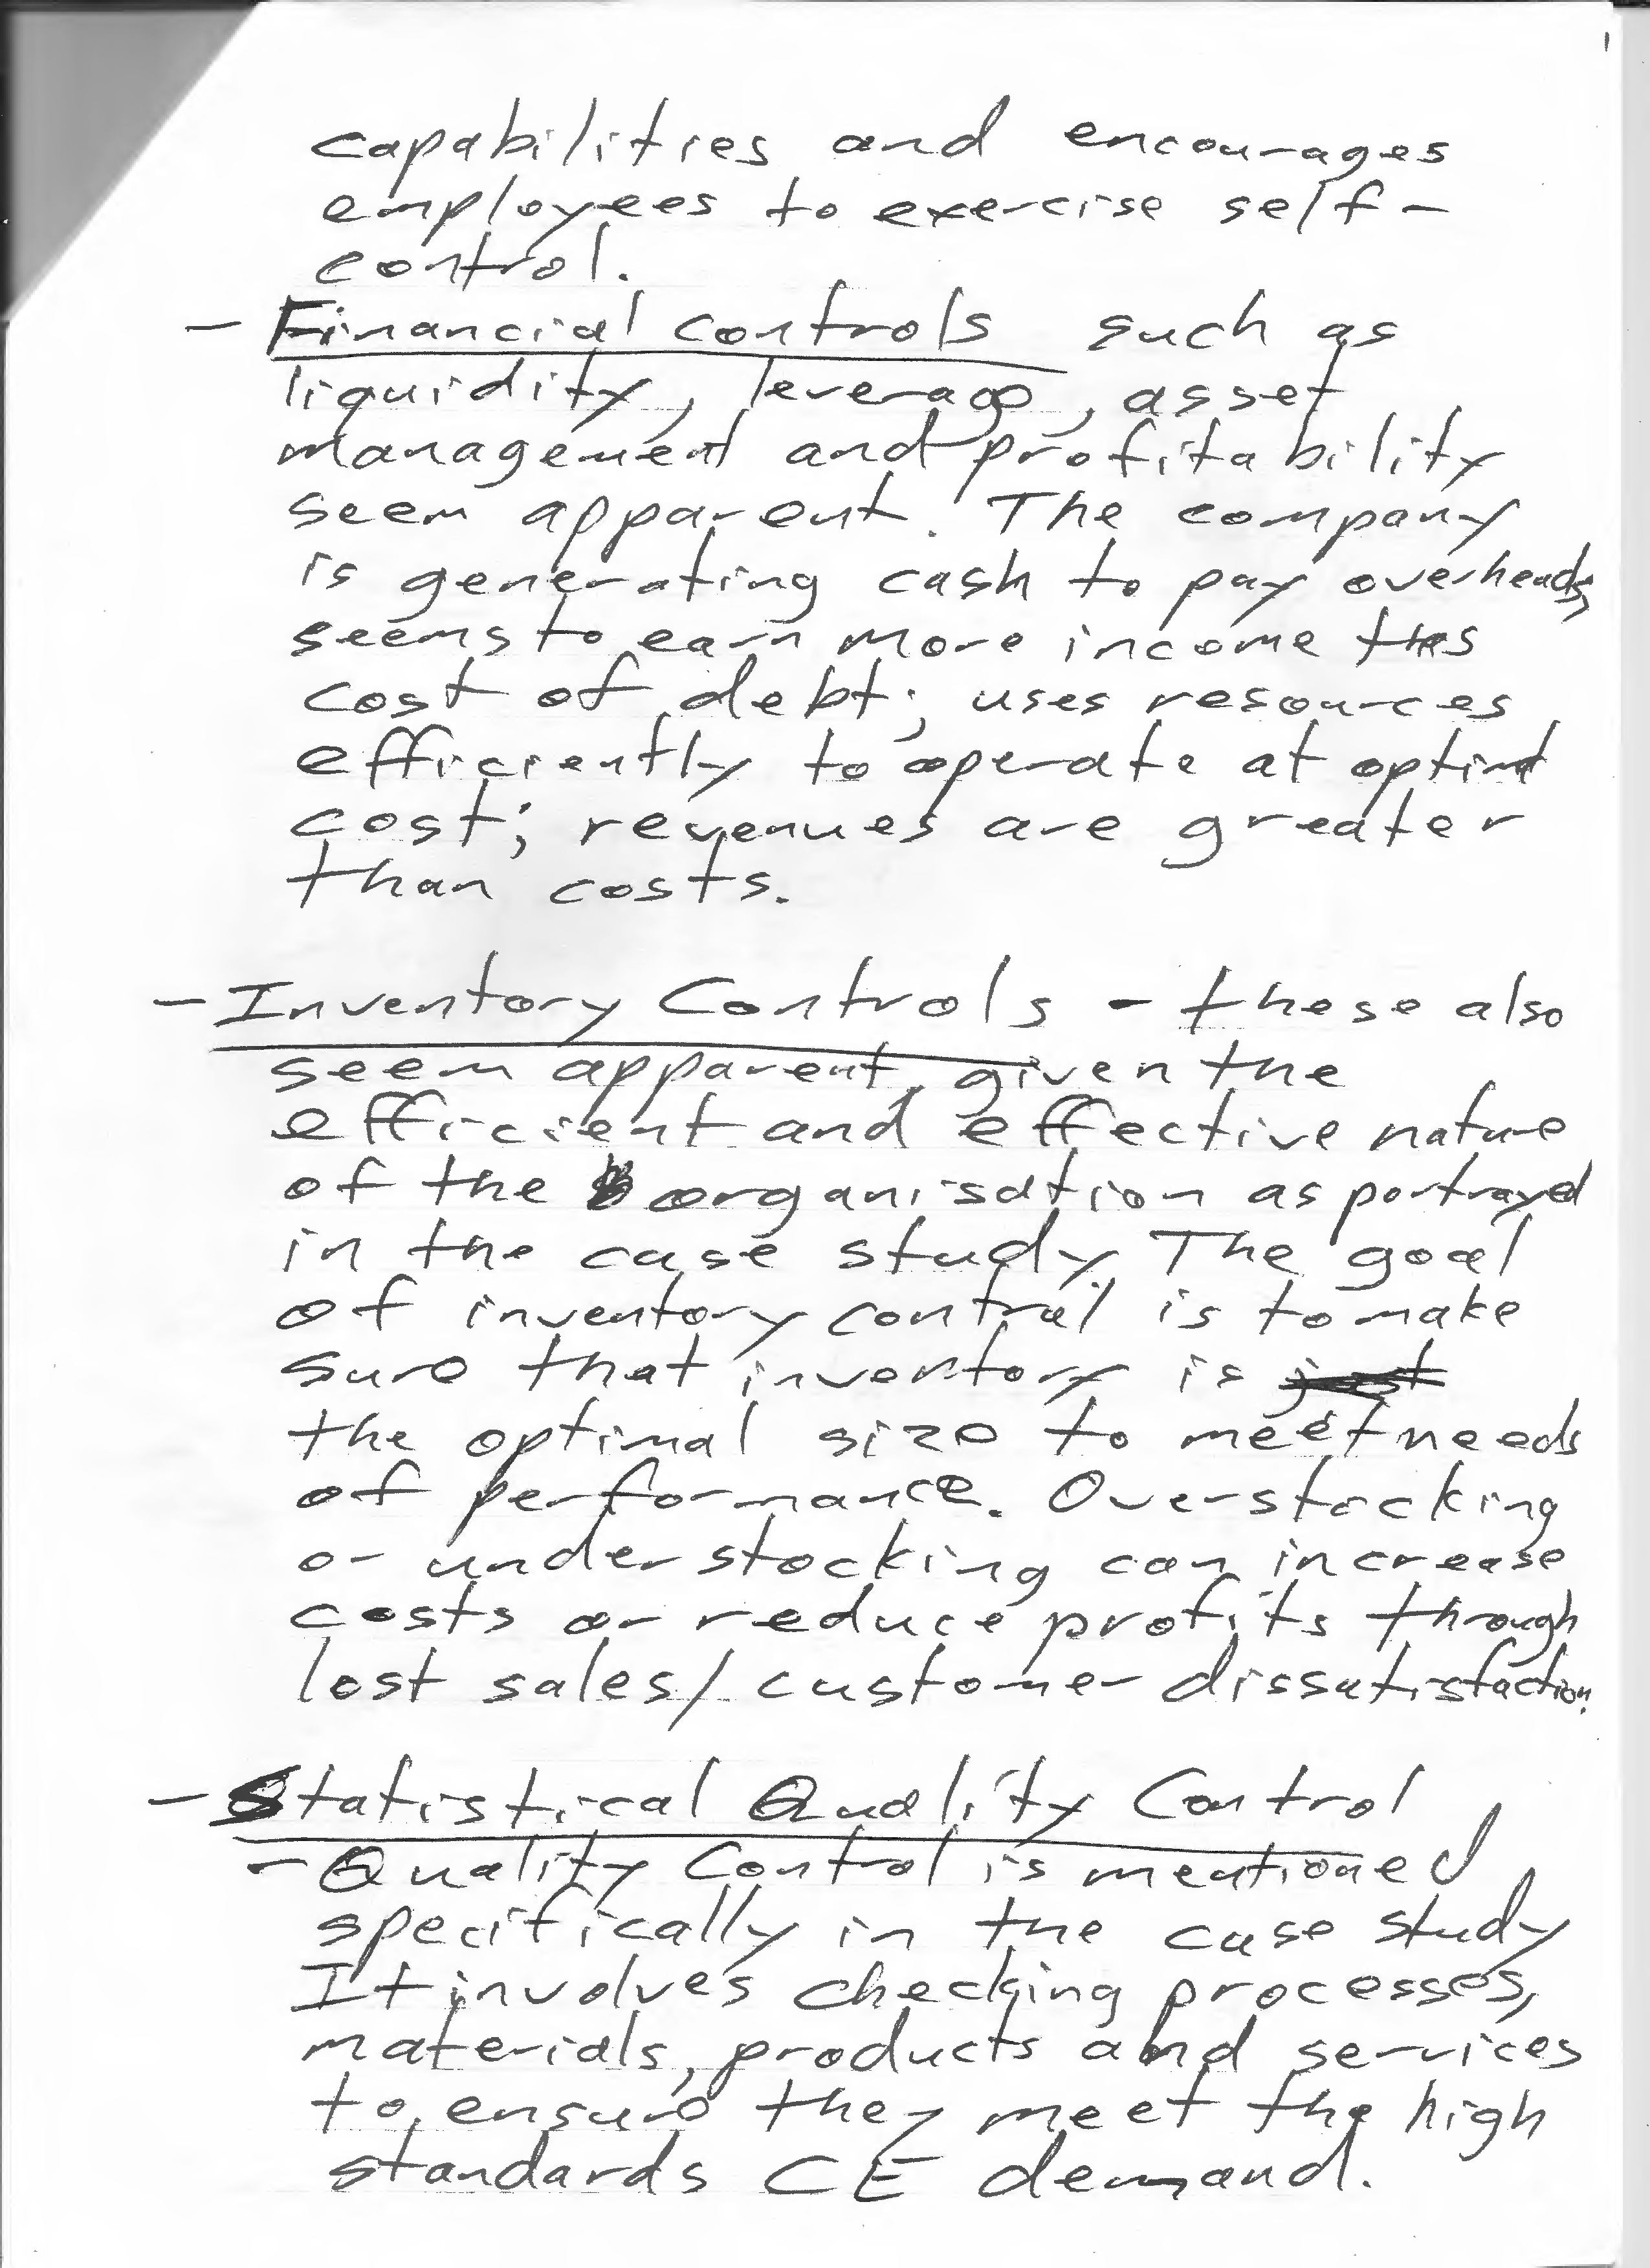 capabilities and encourages
employees to exercise self-
control.
- Financial Controls such as
liquidity, leverage, asset
management and profitability
seem apparent. The company
is generating cash to pay overheads,
seems to earn more income
cost of debt; uses resources
efficiently to operate at
cost; revenues are greater
than costs.
- Inventory Controls - these also
seem apparent, given the
efficient and effective nature
of the organisation as portrayed
in the case study. The goal
of inventory control is to make
sure that inventory is
the optimal size to meet needs
of performance. Overstocking
or understocking can increase
costs or reduce profits through
lost sales/customer dissatisfaction.
- Statistical Quality Control
- Quality Control is mentioned
specifically in the case study
It involves checking processes,
materials, products and services
to ensure they meet the high
standards CE demand.